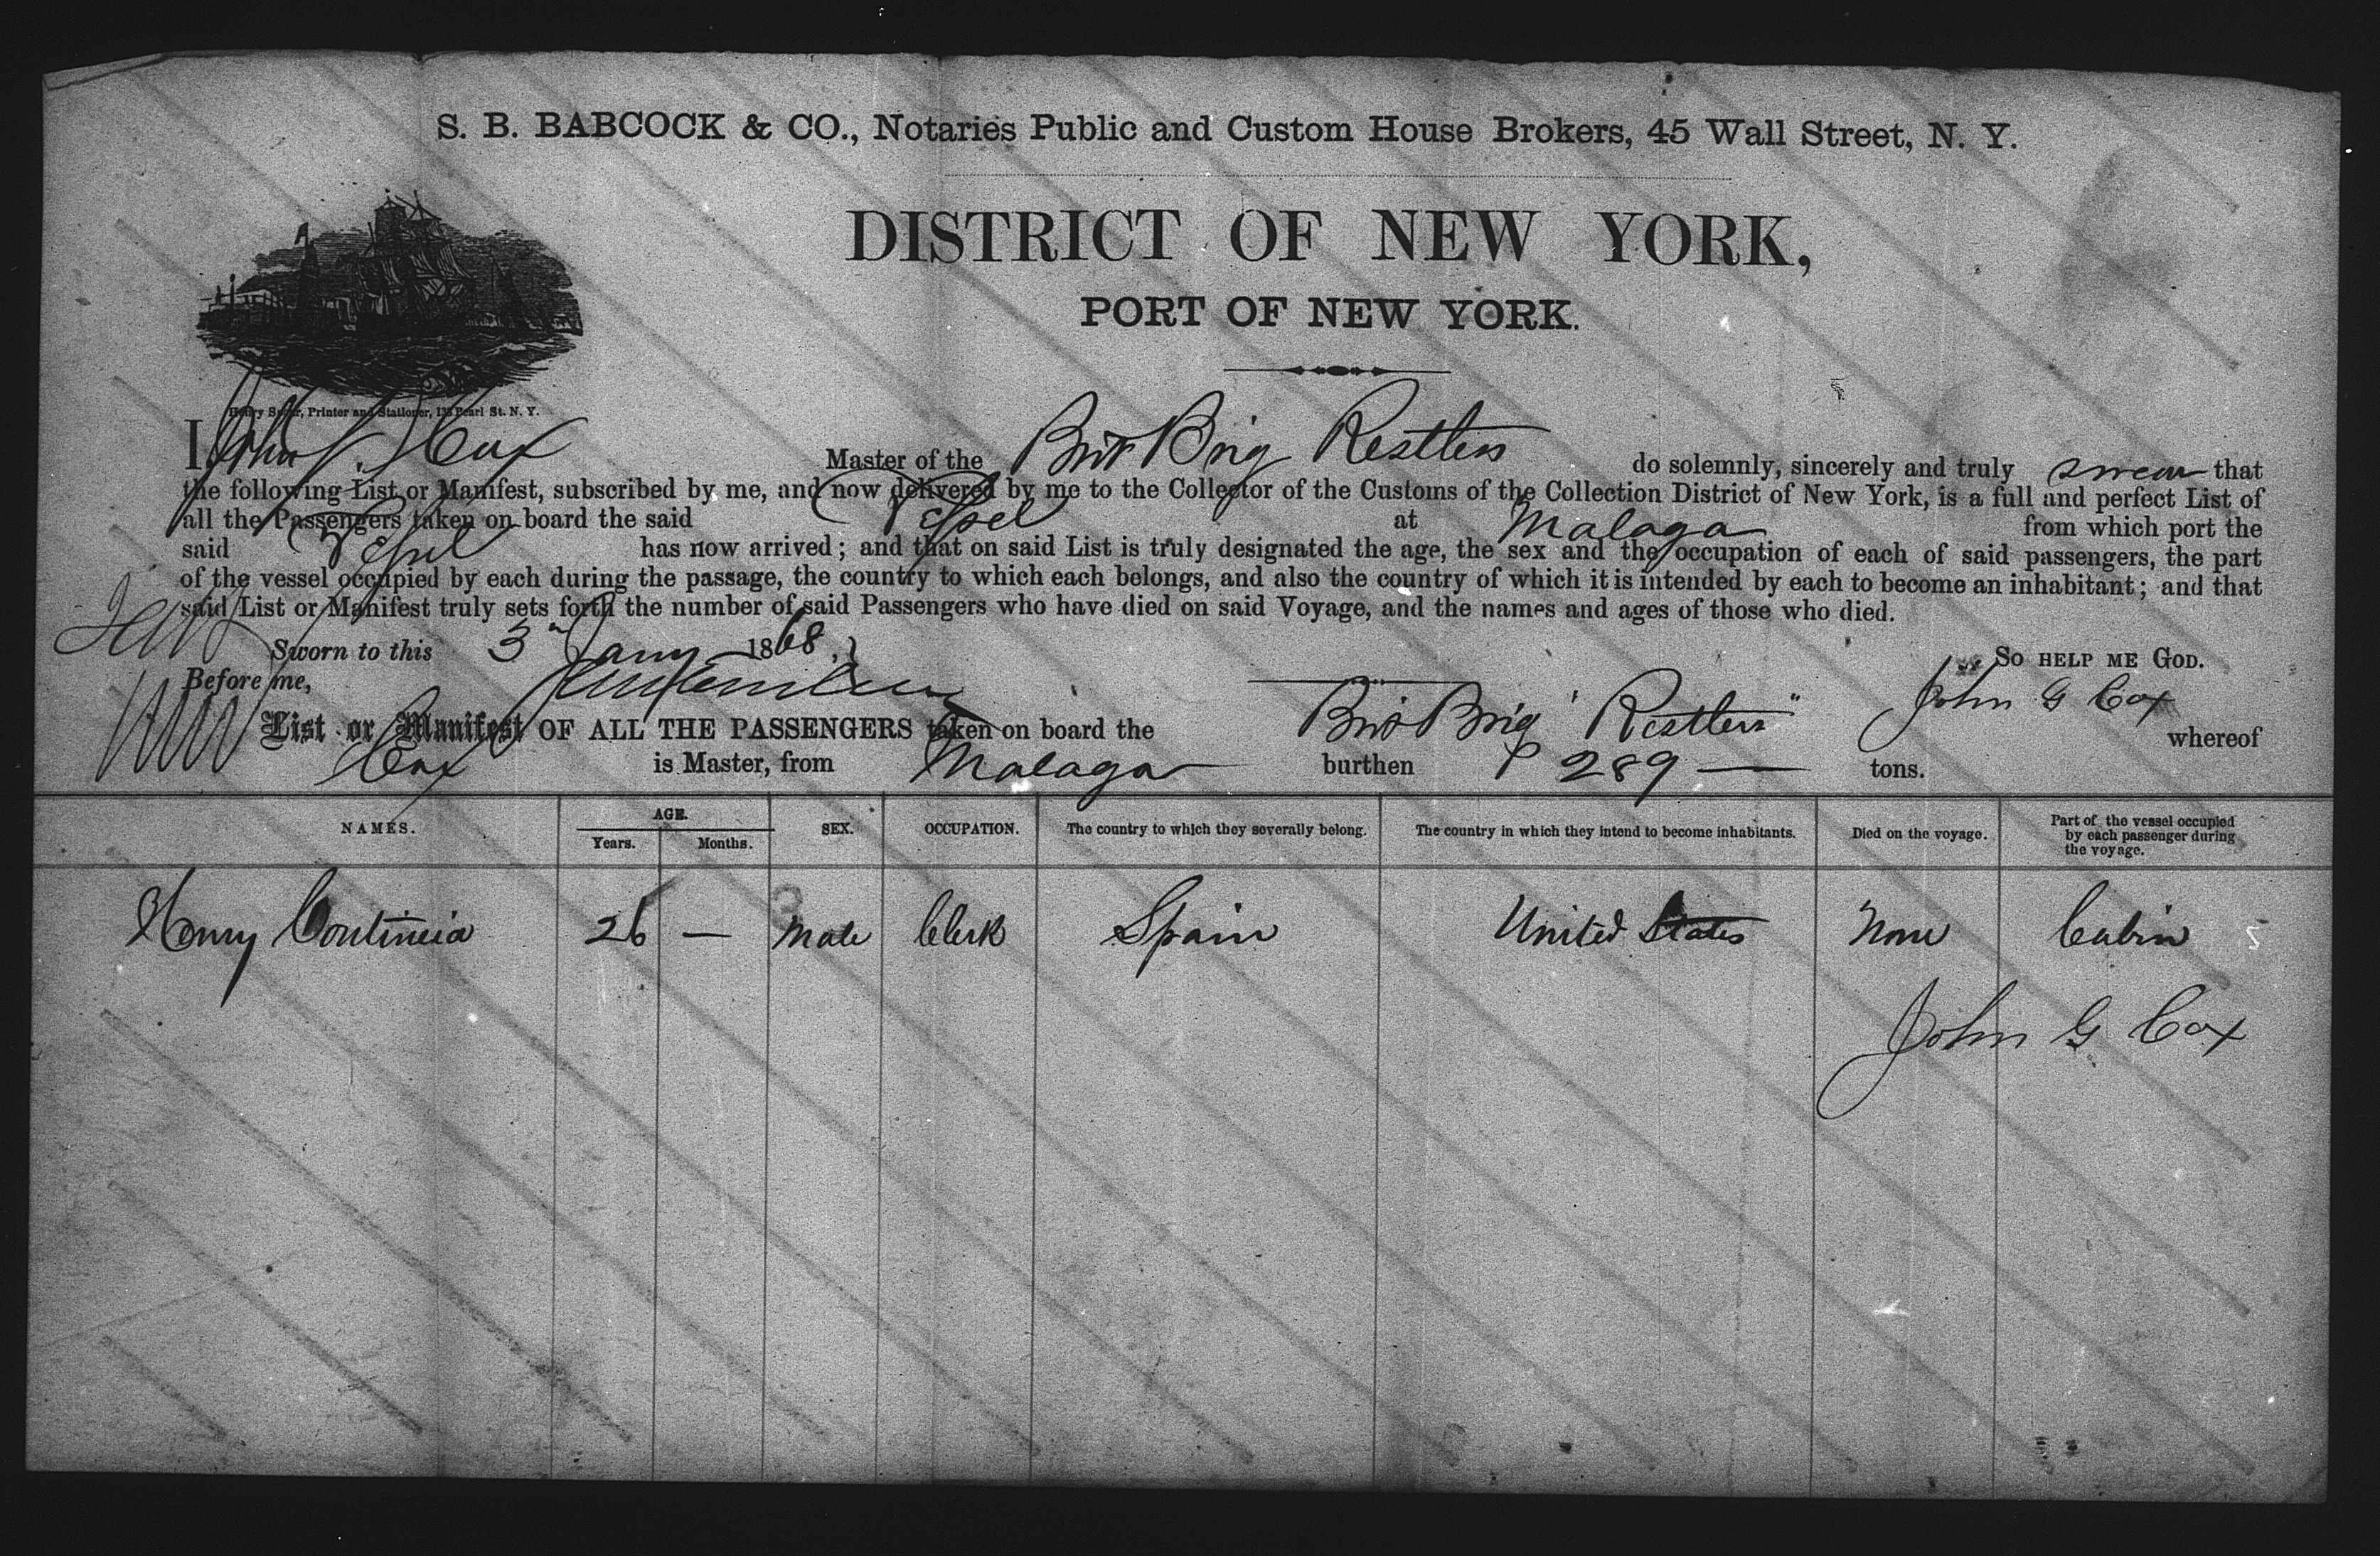 S. B. BABCOCK & CO., Notaries Public and Custom House Brokers, 45 Wall Street, N. Y.
DISTRICT OF NEW YORK,
PORT OF NEW YORK.
Printer and Stationer, Pearl St. N. Y.
I, John G. Cox Master of the Brit Brig Restless do solemnly, sincerely and truly swear that
the following List or Manifest, subscribed by me, and now delivered by me to the Collector of the Customs of the Collection District of New York, is a full and perfect List of
all the Passengers taken on board the said Vessel at Malaga from which port the
said Vessel has now arrived; and that on said List is truly designated the age, the sex and the occupation of each of said passengers, the part
of the vessel occupied by each during the passage, the country to which each belongs, and also the country of which it is intended by each to become an inhabitant; and that
said List or Manifest truly sets forth the number of said Passengers who have died on said Voyage, and the names and ages of those who died.
Sworn to this 3 Jany 1868, So HELP ME GOD.
Before me, John G Cox
List or Manifest OF ALL THE PASSENGERS taken on board the Brit Brig "Restless" whereof
Cox is Master, from Malaga burthen 289 tons.
NAMES. AGE. Years. Months. SEX. OCCUPATION. The country to which they severally belong. The country in which they intend to become inhabitants. Died on the voyage. Part of the vessel occupied by each passenger during the voyage.
Henry 26 — Male Clerk Spain United States None Cabin
John G Cox